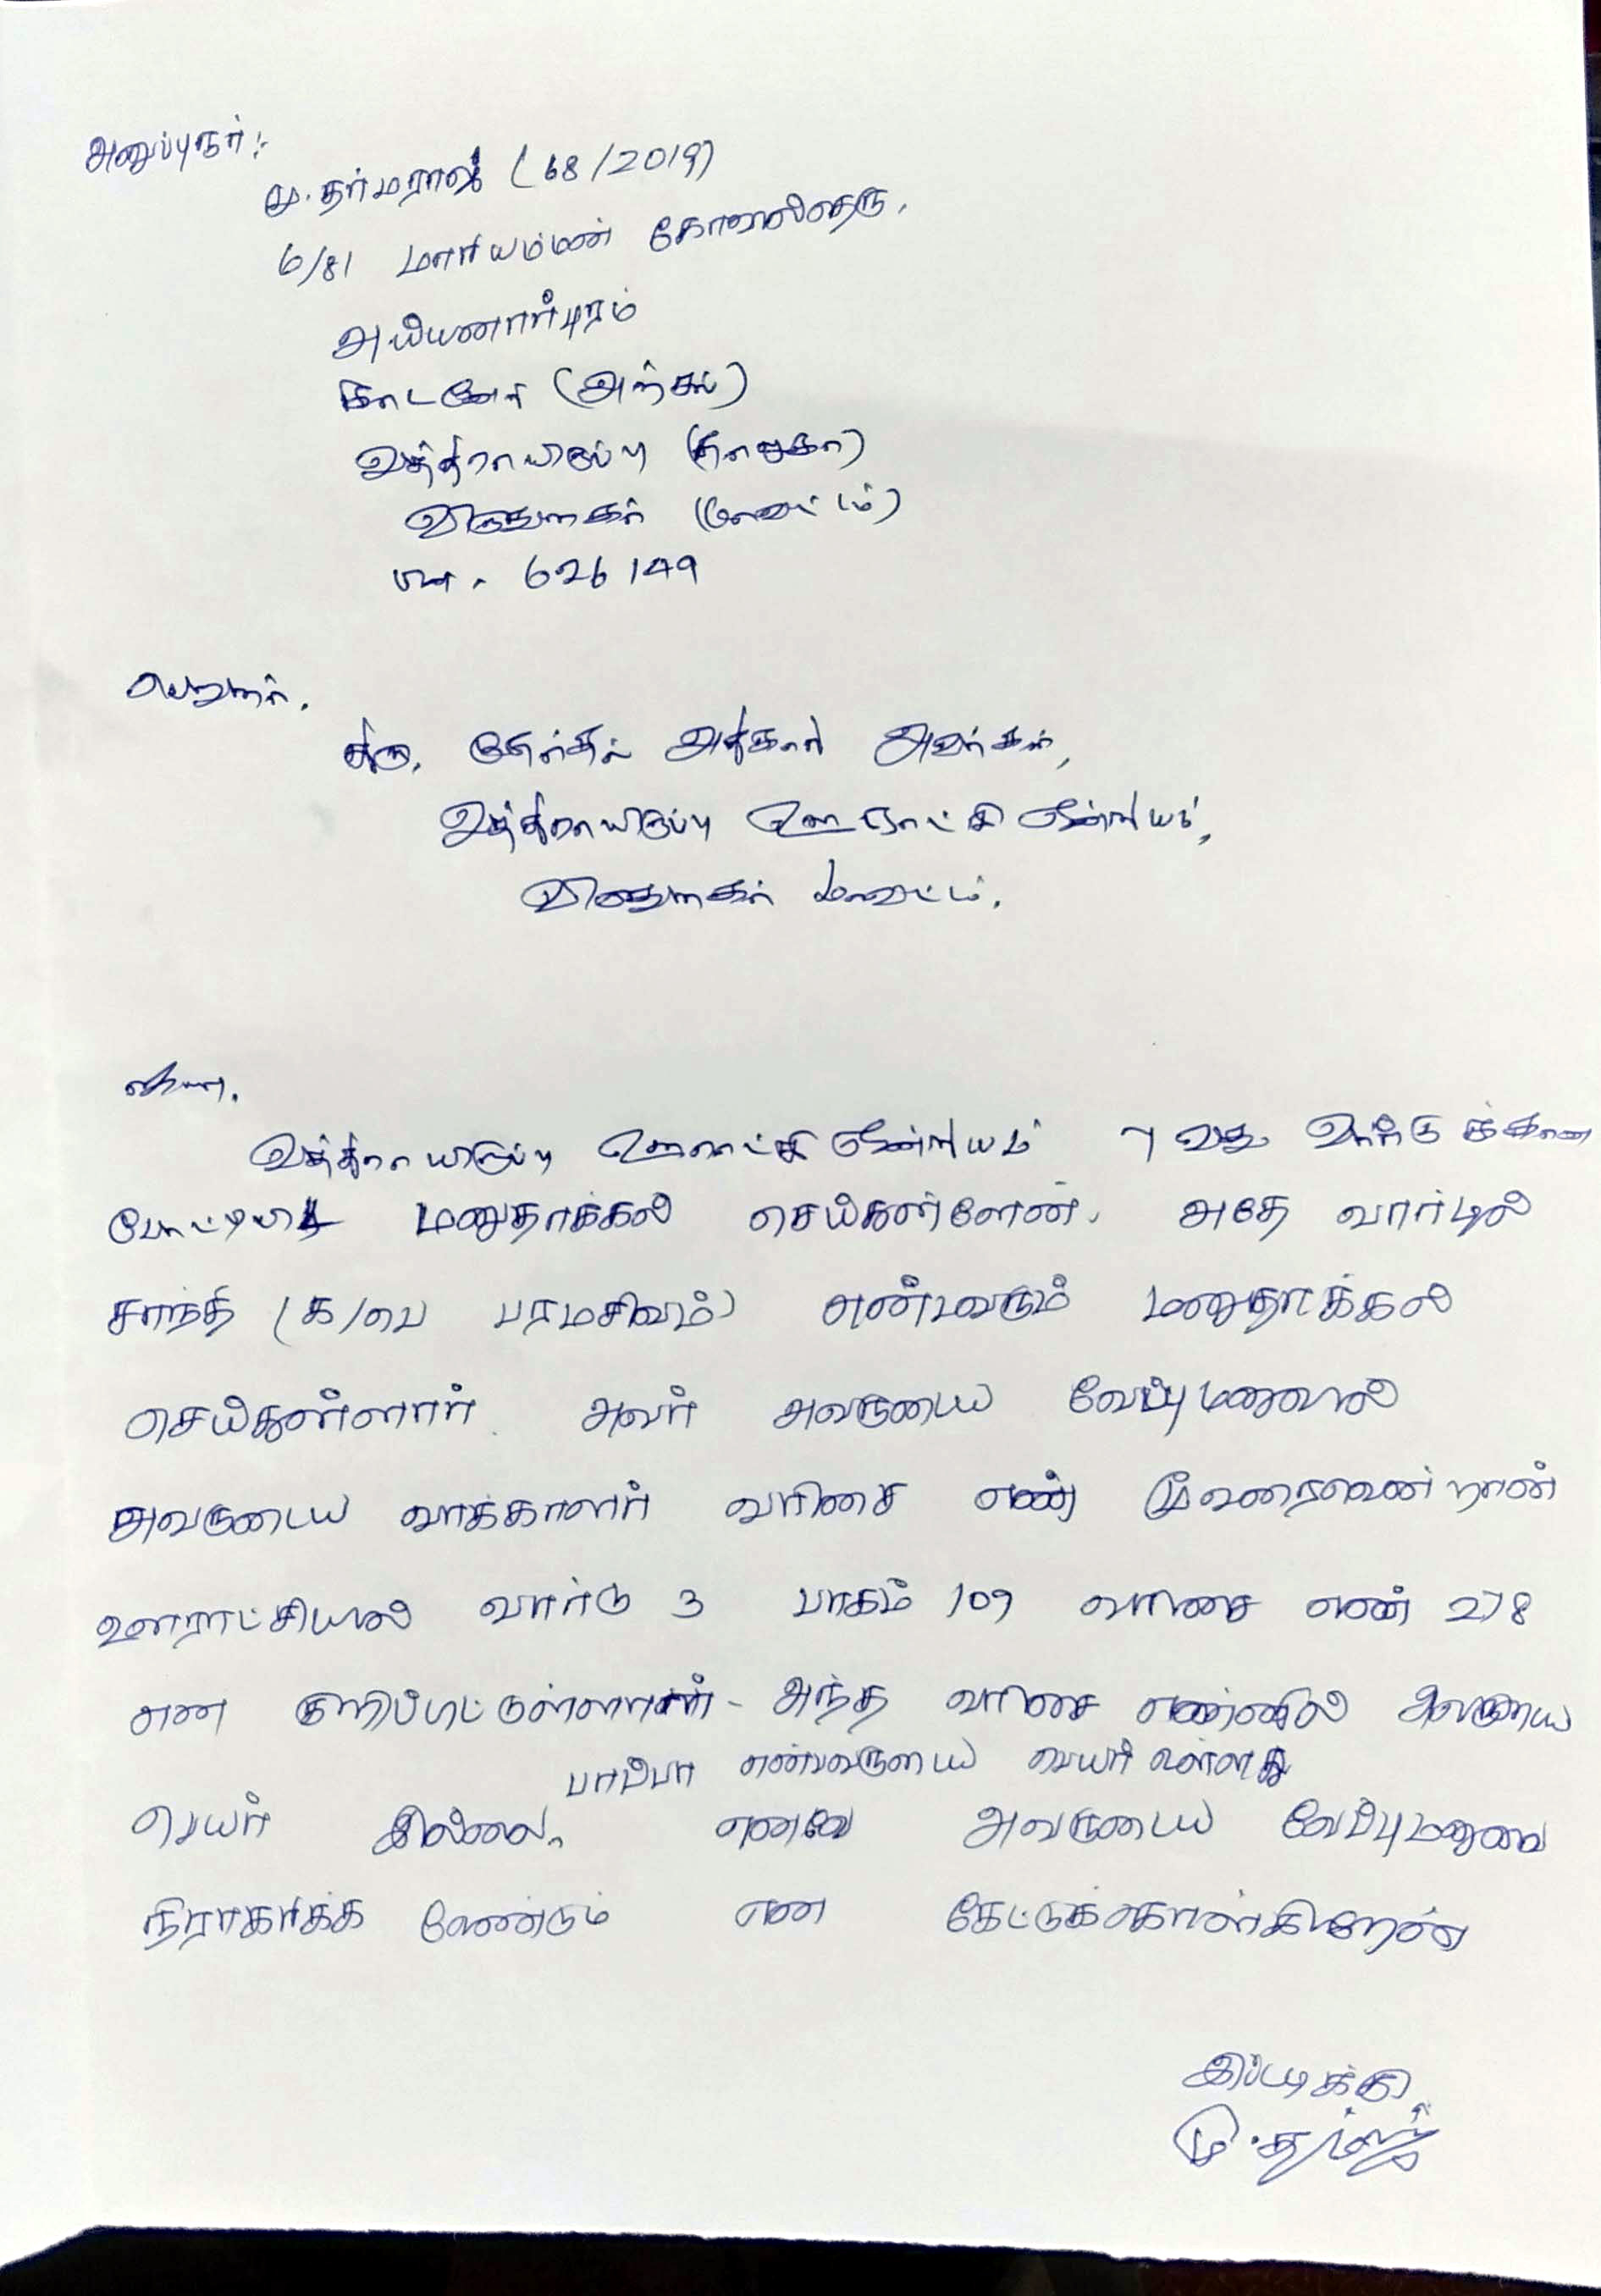 அனுப்புநர்:-
மு.தர்மராஜ் (68/2019)
6/81 மாரியம்மன் கோவில்தெரு,
அய்யனார்புரம்
(அஞ்சல்)
வத்திராயிருப்பு (தாலுகா)
விருதுநகர் (மாவட்டம்)
பின். 626149
பெறுநர்.
திரு. தேர்தல் அதிகாரி அவர்கள்,
வத்திராயிருப்பு ஊராட்சி ஒன்றியம்,
விருதுநகர் மாவட்டம்.
ஐயா.
வத்திராயிருப்பு ஊராட்சி ஒன்றியம் 7 வது வார்டுக்கான
போட்டியிட மனுதாக்கல் செய்துள்ளேன். அதே வார்டில்
சாந்தி (க/பெ பரமசிவம்) என்பவரும் மனுதாக்கல்
செய்துள்ளார். அவர் அவருடைய வேப்புமனுவில்
அவருடைய வாக்காளர் வரிசை எண் மூவரைவென்றான்
ஊராட்சியில் வார்டு 3 பாகம் 109 வரிசை எண் 278
என குறிப்பிட்டுள்ளார் - அந்த வரிசை எண்ணில் அவருடைய
பாப்பா என்பவருடைய பெயர் உள்ளது
பெயர் இல்லை, எனவே அவருடைய வேப்புமனுவை
நிராகரிக்க வேண்டும் என கேட்டுக்கொள்கிறேன்
இப்படிக்கு,